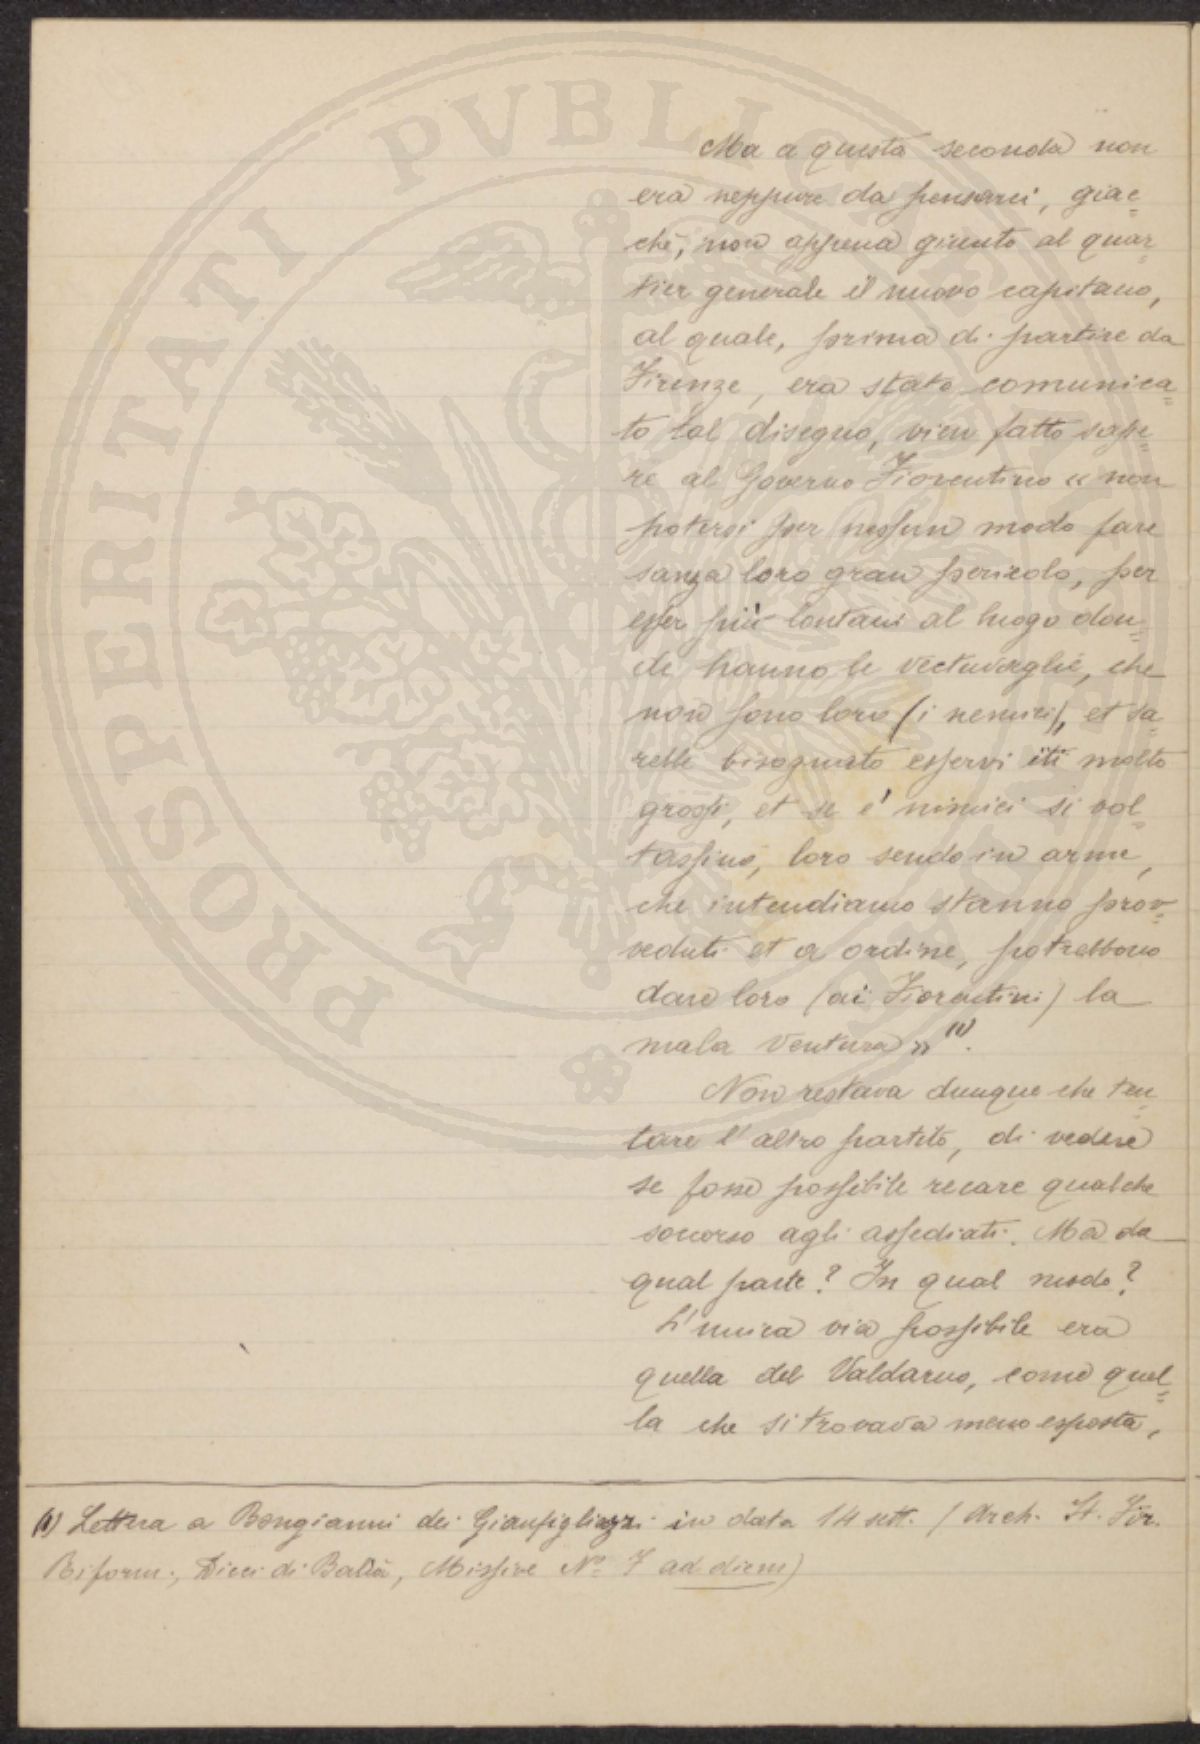 Ma a questa seconda non
era neppure da pensarci, giac=
chè, non appena giunto al quar=
tier generale il nuovo capitano,
al quale, prima di partire da
Firenze, era stato comunica=
to tal disegno, vien fatto sape=
re al Governo Fiorentino « non
potersi per nessun modo fare
sanza loro gran pericolo, per
esser più lontani al luogo don=
de hanno le vectuvaglie, che
non sono loro (i nemici), et sa=
rebbe bisognato esservi iti molto
grossi, et se e' nimici si vol=
tassino, loro sendo in arme,
che intendiamo stanno prov=
veduti et a ordine, potrebbono
dare loro (ai Fiorentini) la
mala ventura » (1).
Non restava dunque che ten=
tare l'altro partito, di vedere
se fosse possibile recare qualche
soccorso agli assediati. Ma da
qual parte? In qual modo?
L'unica via possibile era
quella del Valdarno, come quel=
la che si trovava meno esposta,
(1) Lettera a Bongianni dei Gianfigliazzi in data 14 sett. (Arch. St. Fior.
Riform., Dieci di Balìa, Missive N.º 7 ad diem)
PROSPERITATI PVBLICAE